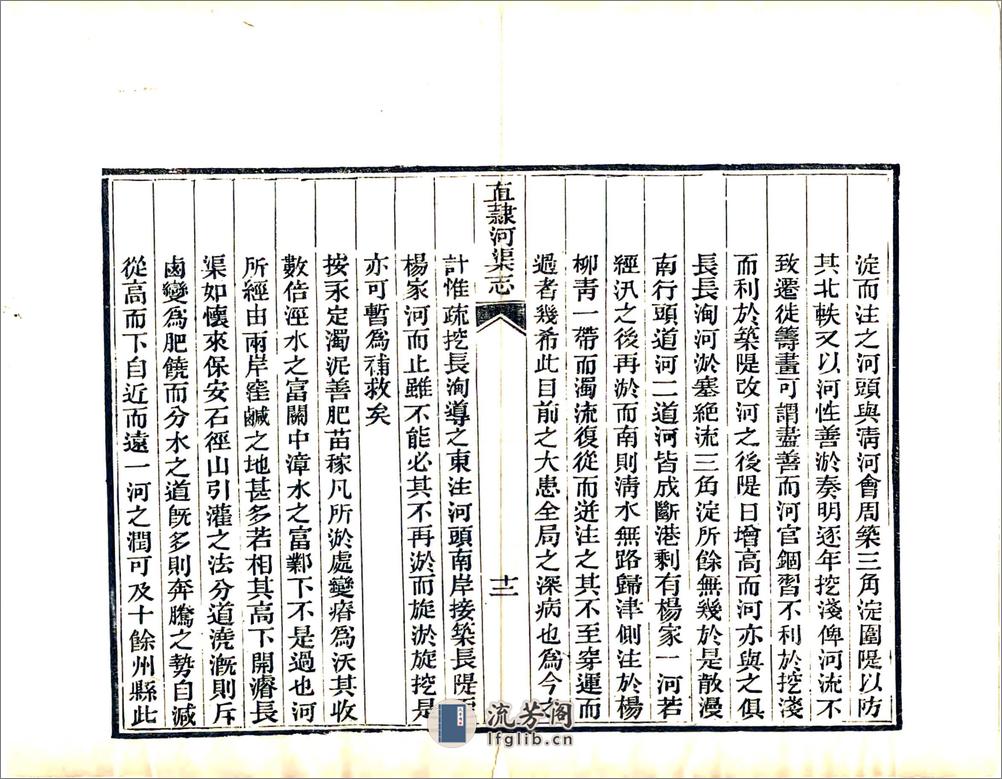 淀而注之河頭與淸河會周築三角淀圍隄以防
其北軼又以河性善淤奏明逐年挖淺俾河流不
致遷徙籌畫可謂盡善而河官錮習不利於挖淺
而利於築隄改河之後隄日增高而河亦與之俱
長長淘河淤塞絕流三角淀所餘無幾於是散漫
南行頭道河二道河皆成斷港剩有楊家一河若
經汛之後再淤而南則淸水無路歸津側注於楊
柳靑一帶而濁流復從而迸注之其不至穿運而
過者幾希此目前之大患全局之深病也爲今之
直隸河渠志
十二
計惟疏挖長洵導之東注河頭南岸接築長隄至
楊家河而止雖不能必其不再淤而旋淤旋挖是
亦可暫爲補救矣
按永定濁泥善肥苗稼凡所淤處變瘠爲沃其收
數倍涇水之富關中漳水之富鄴下不是過也河
所經由兩岸窪鹹之地甚多若相其高下開濬長
渠如懷來保安石徑山引灌之法分道澆漑則斥
鹵變爲肥饒而分水之道旣多則奔騰之勢自減
從高而下自近而遠一河之潤可及十餘州縣此
流芳阁
lfglib.cn